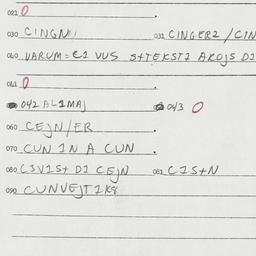 021 0
030 CINGN 031 CINGER2 / CIN
040 VARUM = C1 VUS S++EKST1 AROJS D2
041 0
042 BL1MAJ 043 0
060 CEJN/ER
070 CUN 1N A CUN
080 C3V1S+ D1 CEJN 081 C1S+N
090 CUNVEJT1K8